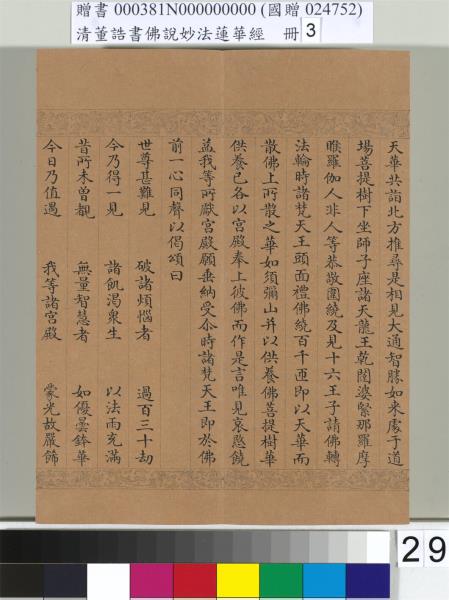 贈書 000381N000000000 (國贈 024752)
清董誥書佛說妙法蓮華經 冊 3
天華共詣北方推尋是相見大通智勝如來處于道
場菩提樹下坐師子座諸天龍王乾闥婆緊那羅摩
睺羅伽人非人等恭敬圍繞及見十六王子請佛轉
法輪時諸梵天王頭面禮佛繞百千匝即以天華而
散佛上所散之華如須彌山并以供養佛菩提樹華
供養已各以宮殿奉上彼佛而作是言唯見哀愍饒
益我等所獻宮殿願垂納受尒時諸梵天王即於佛
前一心同聲以偈頌曰
世尊甚難見 破諸煩惱者 過百三十劫
今乃得一見 諸飢渴衆生 以法雨充滿
昔所未曾覩 無量智慧者 如優曇鉢華
今日乃值遇 我等諸宮殿 蒙光故嚴飾
29